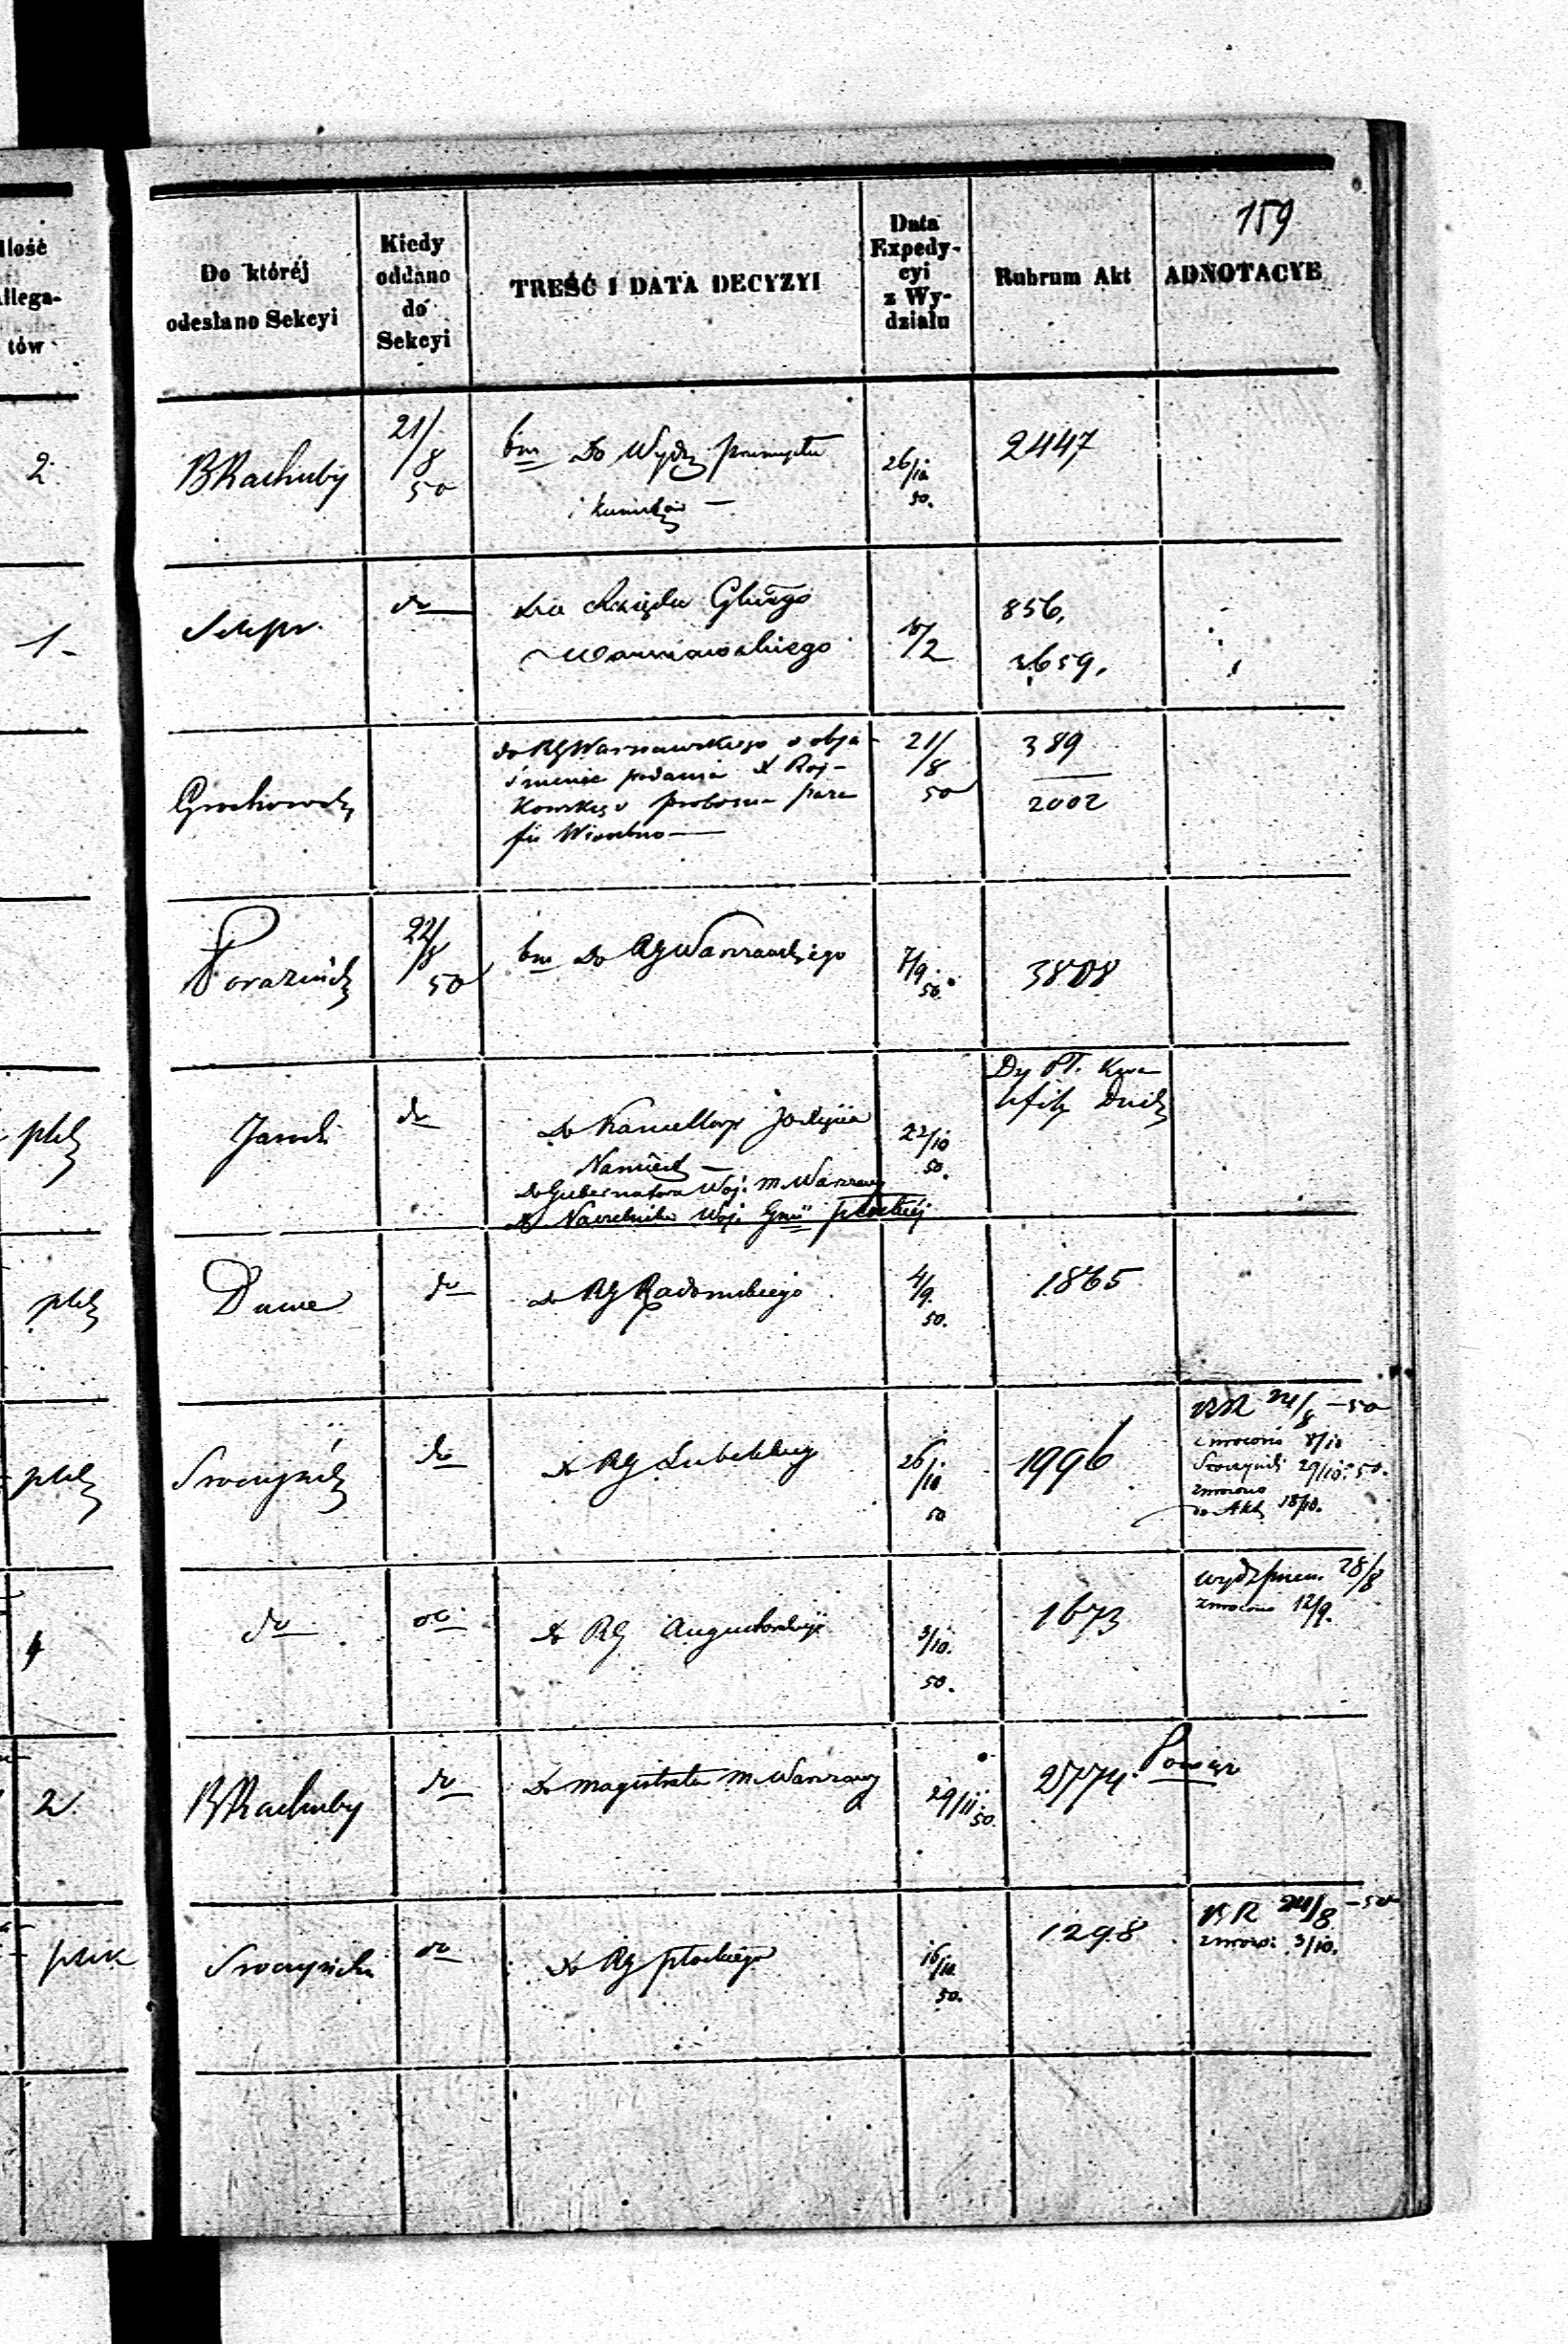 159
Ilość
Allega-
tów
Do której
odesłano Sekcyi
Kiedy
oddano
do
Sekcyi
TREŚĆ I DATA DECYZYI
Data
Expedy-
cyi
z Wy-
działu
Rubrum Akt
ADNOTACYE
2
BRachuby
21/8
50
bm Do Wydz przemysłu
i kunsztów —
26/10
50.
2447
1 -
do
Głnego
Warszawskiego
18/2
856.
3659.
Grochowski
do RG Warszawskiego o obja-
śnienie podania X Roj-
kowskiego proboszcza para
fii Wierzbno —
21/8
50
389
2002
Poraziński
22/8
50
bm Do RG Warszawskiego
7/9
50.
3808
plik
Do Kancellaryi
Namiest —
Do Gubernatora Woj. m. Warszawy
Do Naczelnika Woj. Gnii płockiej
22/10
50.
do
plik
do
do RG Radomskiego
4/9
50.
1865
plik
Sroczyński
do
Do RG Lubelskiego
26/10
50
1996
BR 24/8 - 50
zwrócono 8/10
Sroczyński 29/10 50.
zwrócono
do Akt 18/10.
do
do
Do RG Augustowskiego
3/10.
50.
1673
Wydz 28/8
zwrócono 12/9.
2
BRachuby
do
Do Magistratu m. Warszawy
29/11
50.
2774.
plik
Sroczyński
do
Do RG płockiego
16/10
50.
1298
BR 24/8 - 50
zwróco: 3/10.